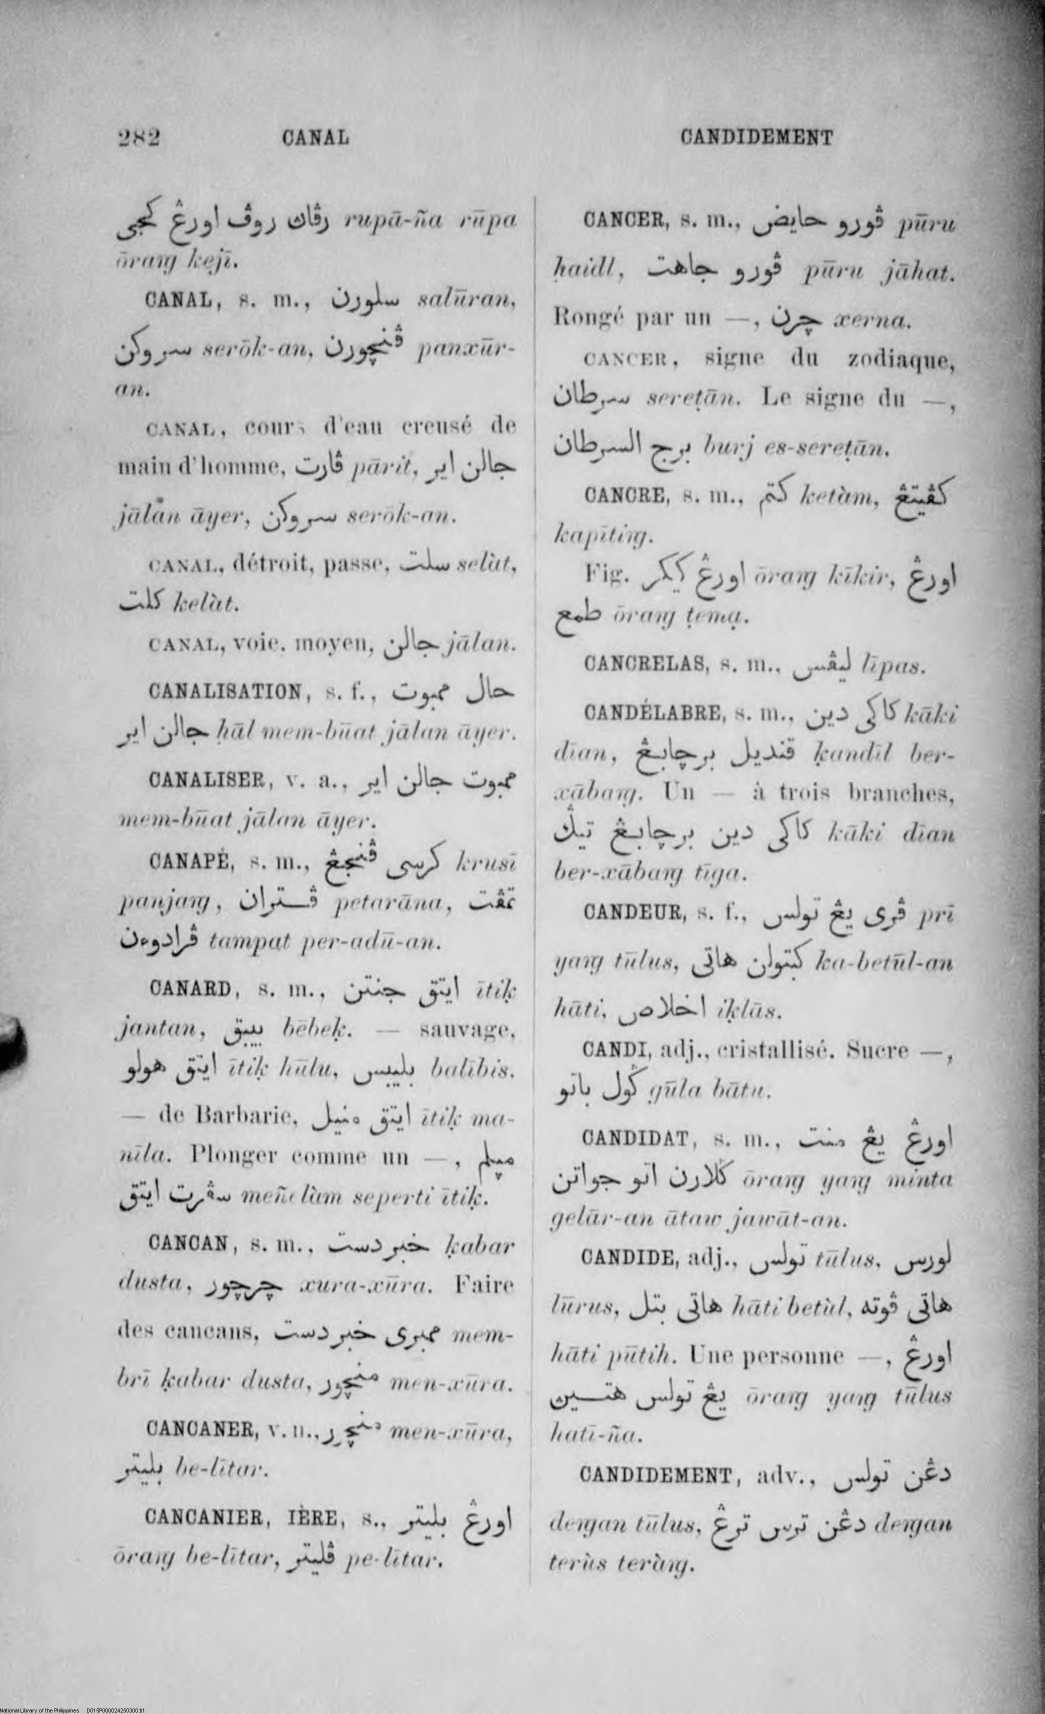 282 CANAL CANDIDEMENT
رڤاڽ روڤ اورڠ کجی rupā-ña rūpa
ōraŋ kejī.
CANAL, s. m., سلورن salūran,
سروکن serōk-an, ڤنچورن panxūr-
an.
CANAL, cours d'eau creusé de
main d'homme, ڤارت pārit, جالن اير
jālan āyer, سروکن serōk-an.
CANAL, détroit, passe, سلت selàt,
کلت kelàt.
CANAL, voie, moyen, جالن jālan.
CANALISATION, s. f., حال ممبوت
جالن اير ḥāl mem-būat jālan āyer.
CANALISER, v. a., ممبوت جالن اير
mem-būat jālan āyer.
CANAPÉ, s. m., کرسی ڤنجڠ krusī
panjaŋ, ڤتران petarāna, تمڤت
ڤرادوءن tampat per-adū-an.
CANARD, s. m., ايتق جنتن ītiḳ
jantan, بيبق bēbeḳ. — sauvage,
ايتق هولو ītiḳ hūlu, بليبس balībis.
— de Barbarie, ايتق منيل ītiḳ ma-
nīla. Plonger comme un —, ميلم
سڤرت ايتق meñelàm seperti ītiḳ.
CANCAN, s. m., خبر دست ḳabar
dusta, چرچور xura-xūra. Faire
des cancans, ممبری خبر دست mem-
brī ḳabar dusta, منچور men-xūra.
CANCANER, v. n., منچور men-xūra,
بليتر be-lītar.
CANCANIER, IÈRE, s., اورڠ بليتر
ōraŋ be-lītar, ڤليتر pe-lītar.
CANCER, s. m., ڤورو حايض pūru
ḥaidl, ڤورو جاهت pūru jāhat.
Rongé par un —, چرن xerna.
CANCER, signe du zodiaque,
سرطان sereṭān. Le signe du —,
برج السرطان burj es-sereṭān.
CANCRE, s. m., کتم ketàm, کڤيتڠ
kapītiŋ.
Fig. اورڠ کيکر ōraŋ kīkir, اورڠ
طمع ōraŋ ṭemạ.
CANCRELAS, s. m., ليڤس līpas.
CANDÉLABRE, s. m., کاکی دين kāki
dīan, قنديل برچابڠ ḳandīl ber-
xābaŋ. Un — à trois branches,
کاکی دين برچابڠ تيݢ kāki dīan
ber-xābaŋ tīga.
CANDEUR, s. f., ڤری يڠ تولس prī
yaŋ tūlus, کبتولن هاتی ka-betūl-an
hāti, اخلاص iḳlās.
CANDI, adj., cristallisé. Sucre —,
ݢول باتو gūla bātu.
CANDIDAT, s. m., اورڠ يڠ منت
ݢلارن اتو جواتن ōraŋ yaŋ minta
gelār-an ātaw jawāt-an.
CANDIDE, adj., تولس tūlus, لورس
lūrus, هاتی بتل hāti betùl, هاتی ڤوته
hāti pūtih. Une personne —, اورڠ
يڠ تولس هتين ōraŋ yaŋ tūlus
hatī-ña.
CANDIDEMENT, adv., دڠن تولس
deŋan tūlus, دڠن ترس ترڠ deŋan
terùs teràŋ.
National Library of the Philippines